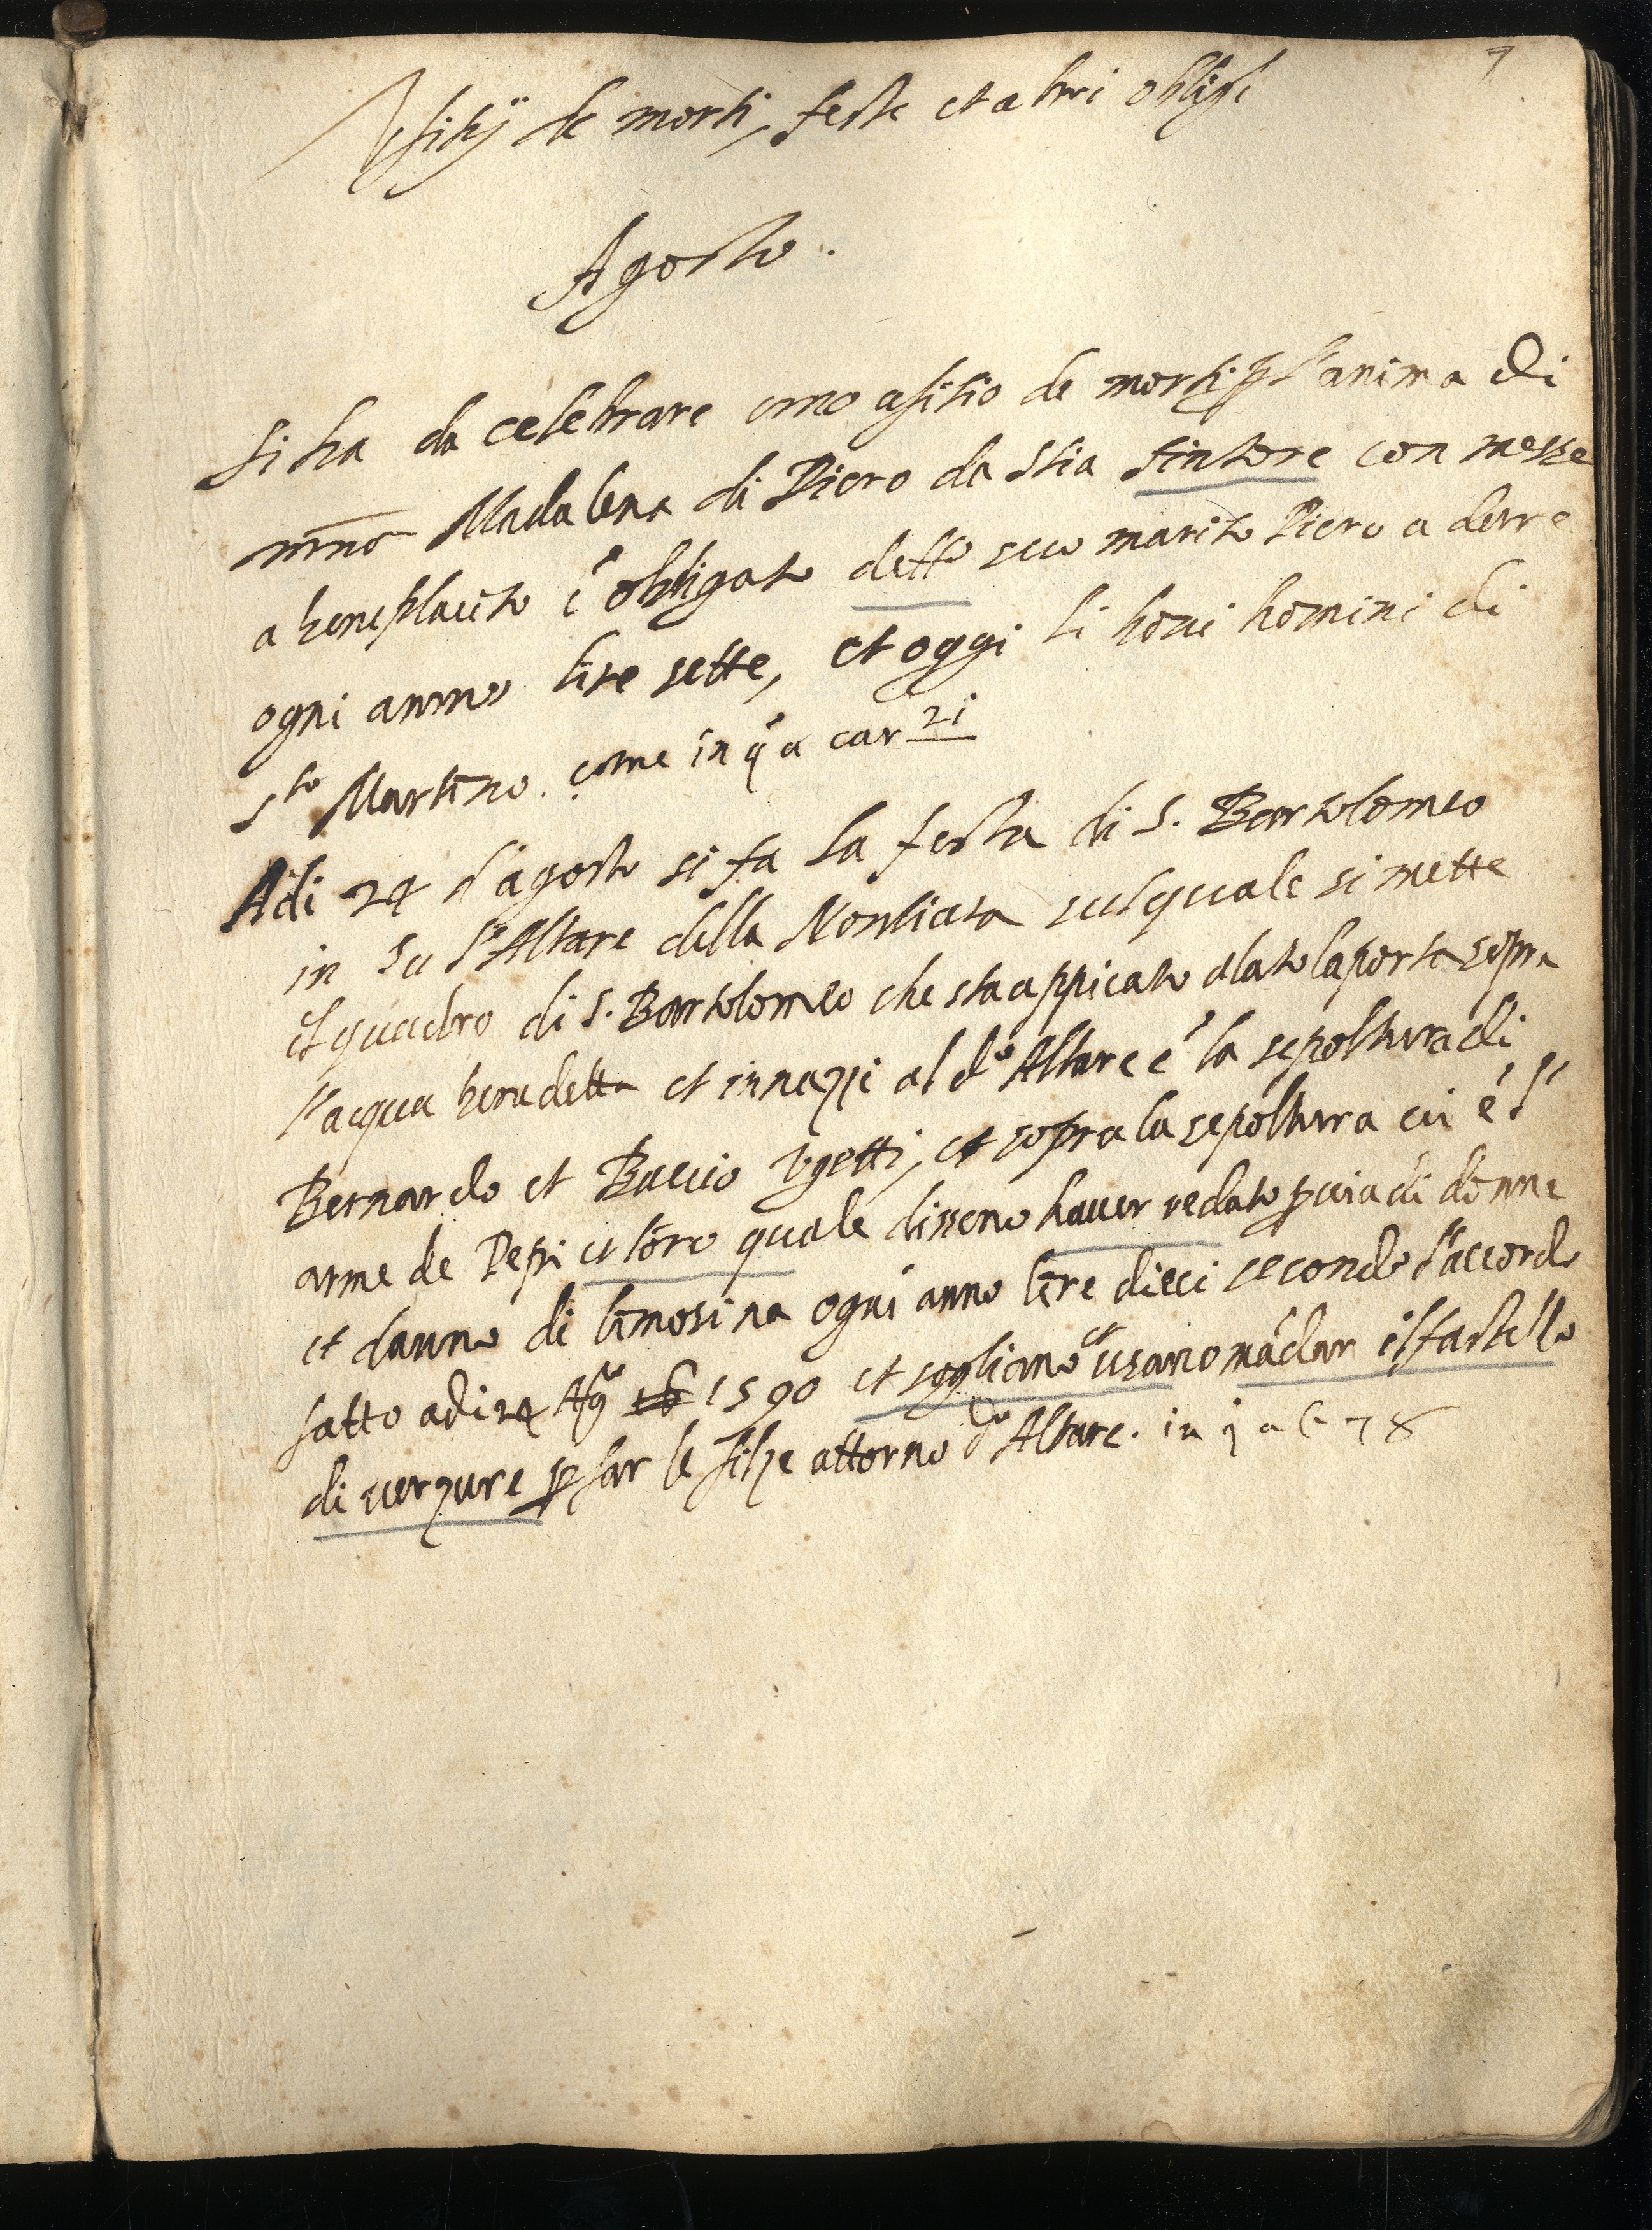 7
Vfitij de morti, feste et altri oblighi
Agosto.
Si ha da celebrare uno ofitio de morti p l'anima di
Madalena di Piero da Stia tintore con messe
a beneplacito é obligato detto suo marito Piero a darre
ogni anno lire sette, et oggi li boni homini di
S.to Martino. come in q.a car 21
Adi 24 d'agosto si fa la festa di S. Bartolomeo
in su l'Altare della Nontiata sul quale si mette
il quadro di S. Bartolomeo che sta appicato alato la porta sopra
l'acqua benedetta et innazzi al d.o Altare é la sepoltura di
Bernardo et Baccio Vgetti, et sopra la sepoltura cui é l'
arme de Pepi et loro quale dissono hauer redato p uia di donne
et danno di limosina ogni anno lire dieci secondo l'accordo
fatto adi 24 Ag.o 1590 et sogliano et usano mādar il fastello
di uerzure p far le filze attorno d.o Altare. in q a c 78